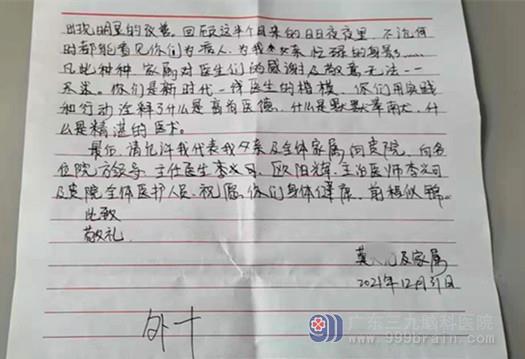 出现明显的改善。回顾这半个月来的日日夜夜里，不论何
时都能看见你们为病人、为我父亲忙碌的身影……
凡此种种，家属对医生们的感谢及敬意无法一一
言表。你们是新时代一线医生的楷模，你们用实践
和行动诠释了什么是高尚医德，什么是默默奉献，什
么是精湛的医术。
最后，请允许我代表我父亲及全体家属向贵院，向各
位院方领导、主任医生李 欧阳辉、主治医师李
及贵院全体医护人员，祝愿你们身体健康，前程似锦。
此致
敬礼
莫 及家属
2021年12月31日
外十
广东三九脑科医院
www.999brain.com